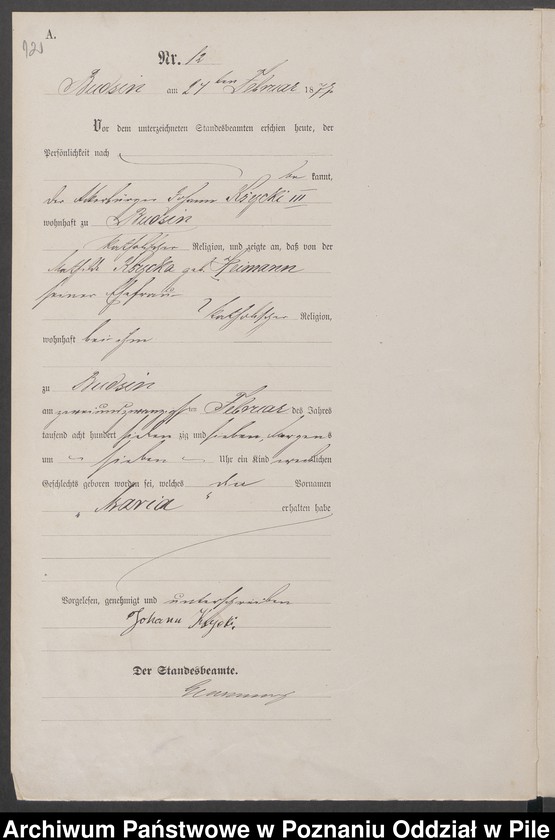 A.
Nr. 12
Budsin am 24ten Februar 1877.
Vor dem unterzeichneten Standesbeamten erschien heute, der
Persönlichkeit nach
be kannt,
der Ackerbürger Johann Ksycki III
wohnhaft zu Budsin
katholischer Religion, und zeigte an, daß von der
Mathilde Ksycka geb. Heimann
seiner Ehefrau
katholischer Religion,
wohnhaft bei ihm
zu Budsin
am zweiundzwanzigsten Februar des Jahres
tausend acht hundert sieben zig und sieben, Morgens
um sieben Uhr ein Kind weiblichen
Geschlechts geboren worden sei, welches den Vornamen
„Maria“ erhalten habe
Vorgelesen, genehmigt und unterschrieben
Johann Ksycki.
Der Standesbeamte.
Archiwum Państwowe w Poznaniu Oddział w Pile